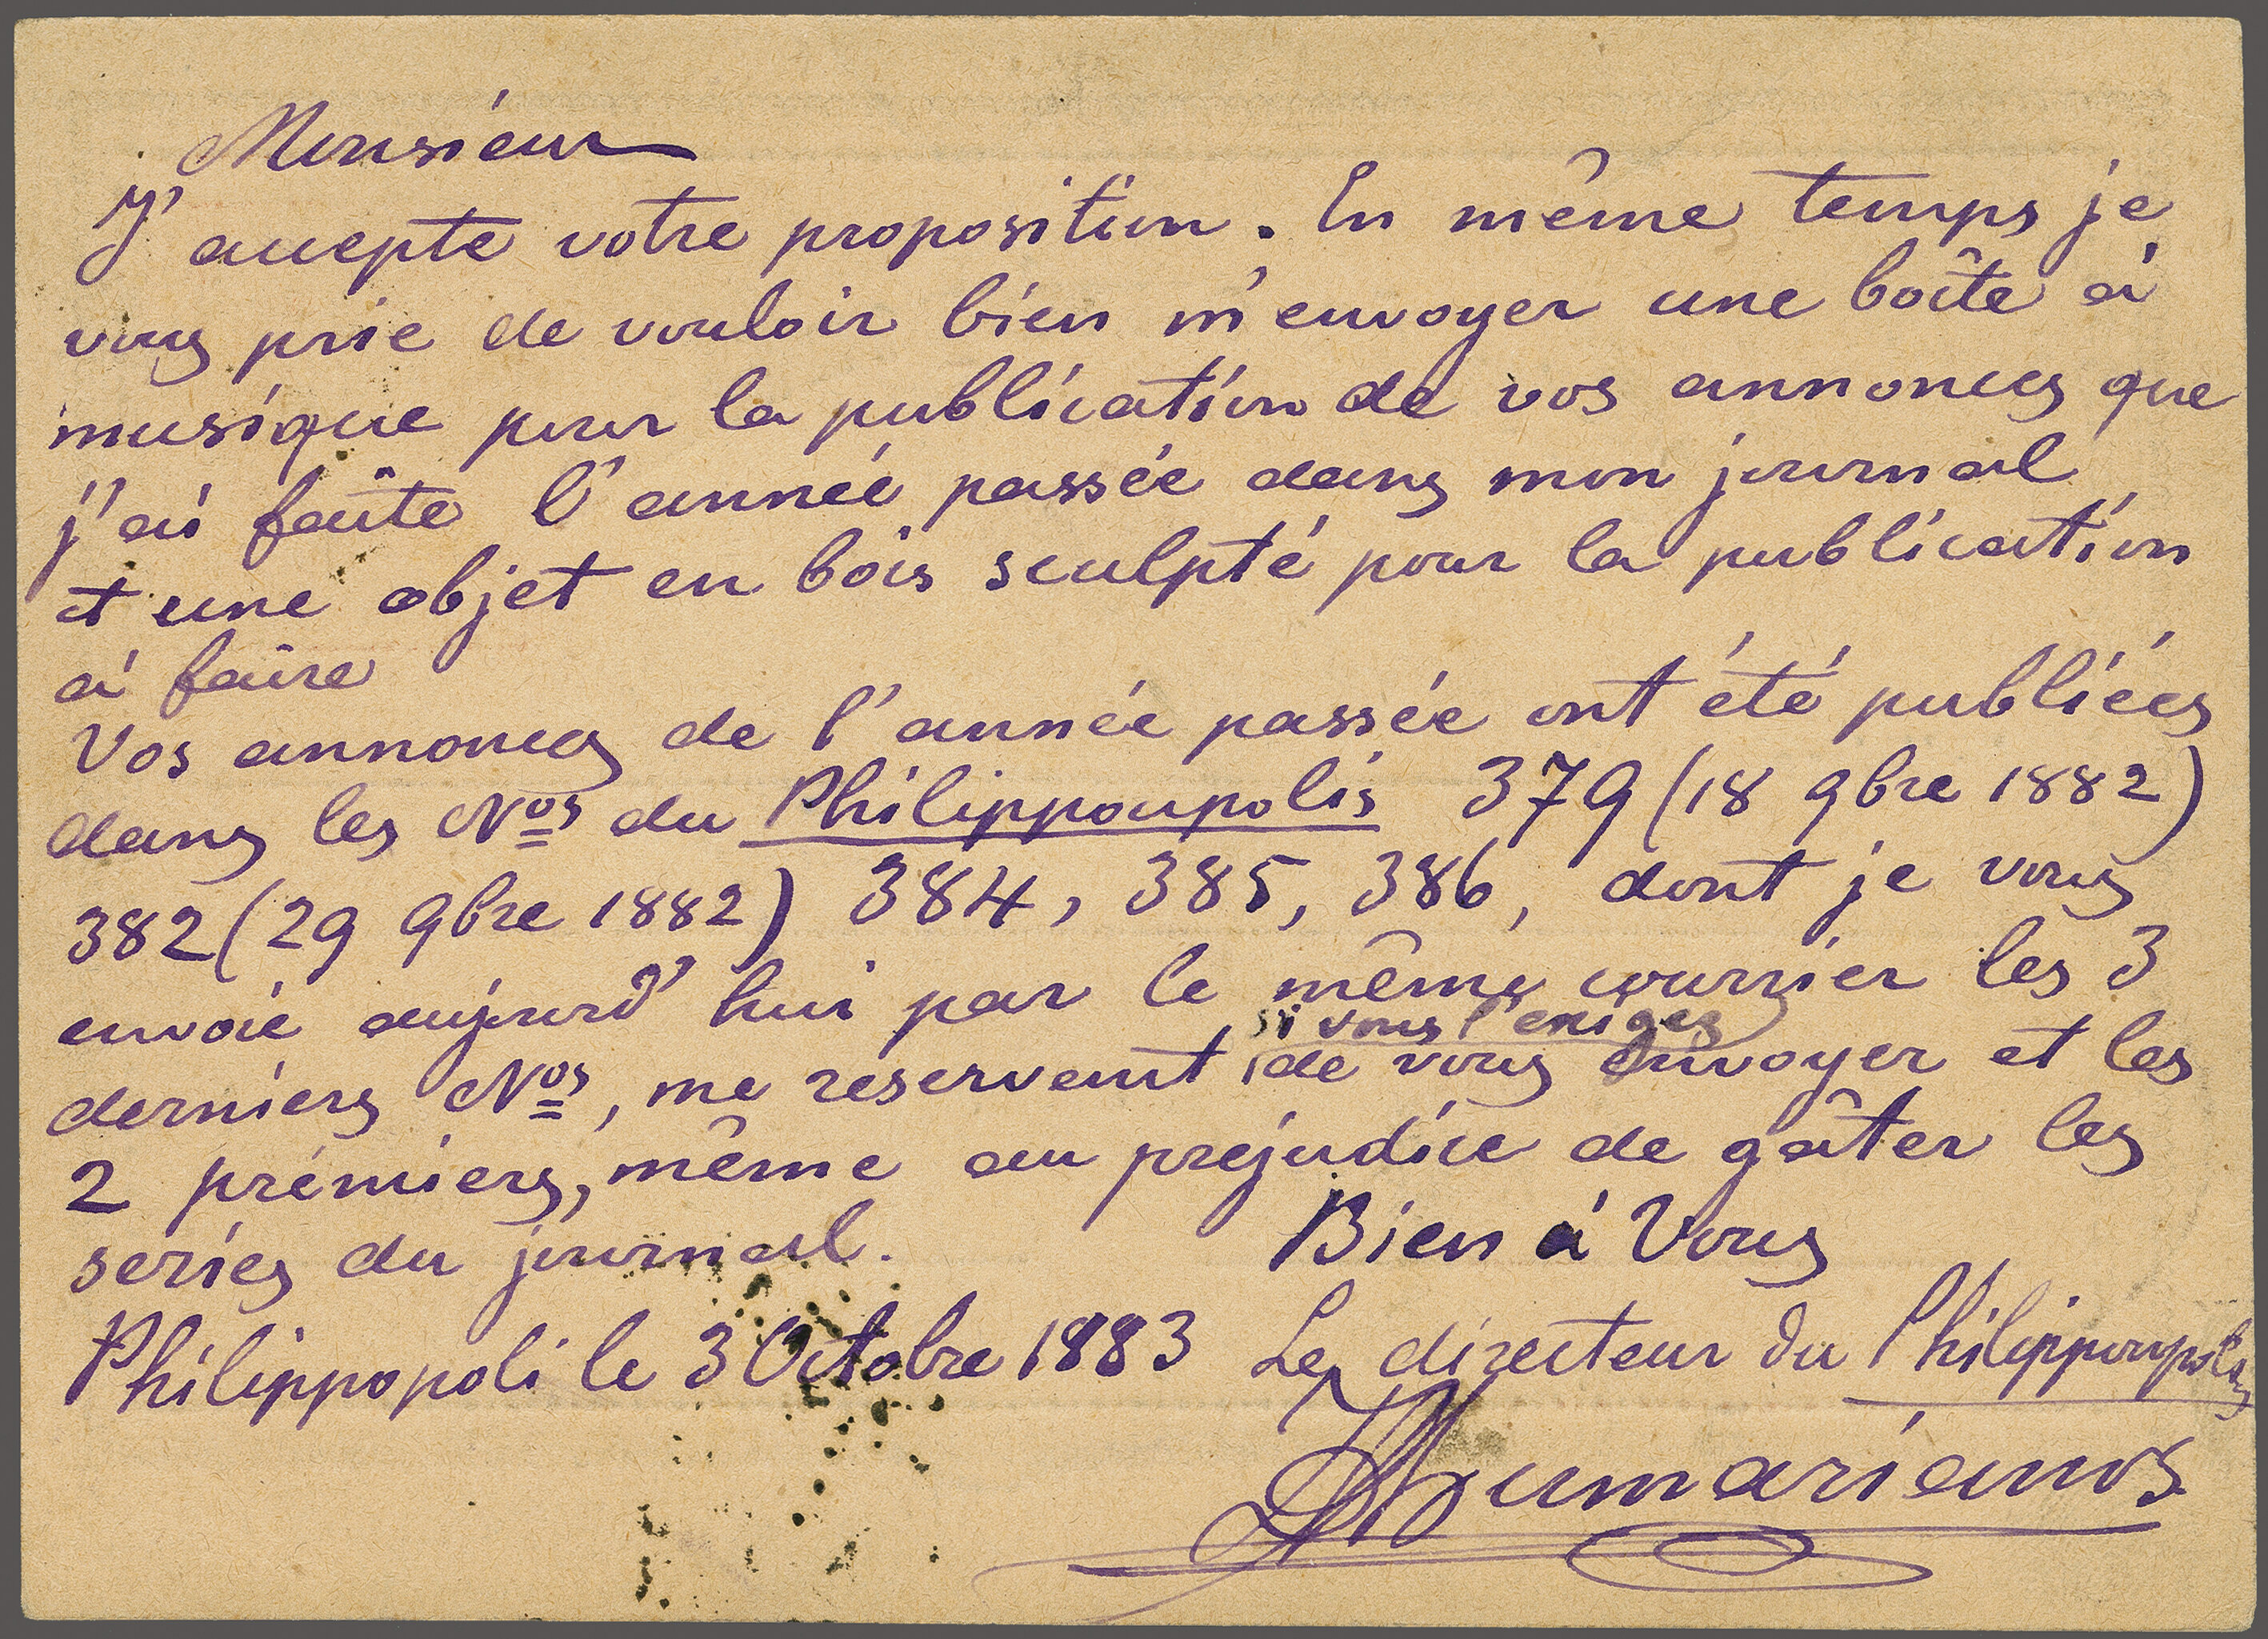 Monsieur
J'accepte votre proposition. En même temps je
vous prie de vouloir bien m'envoyer une boîte à
musique pour la publication de vos annonces que
j'ai faîte l'année passée dans mon journal
et une objet en bois sculpté pour la publication
à faire
Vos annonces de l'année passée ont été publiées
dans les Nos du Philippoupolis 379 (18 9bre 1882)
382 (29 9bre 1882) 384, 385, 386, dont je vous
envoie aujourd'hui par le même courrier les 3
si vous l'exigez
derniers Nos, me reservant de vous envoyer et les
2 prémiers, même au préjudice de gâter les
series du journal.
Bien à Vous
Philippopoli le 3 Octobre 1883 Le directeur du Philippoupolis